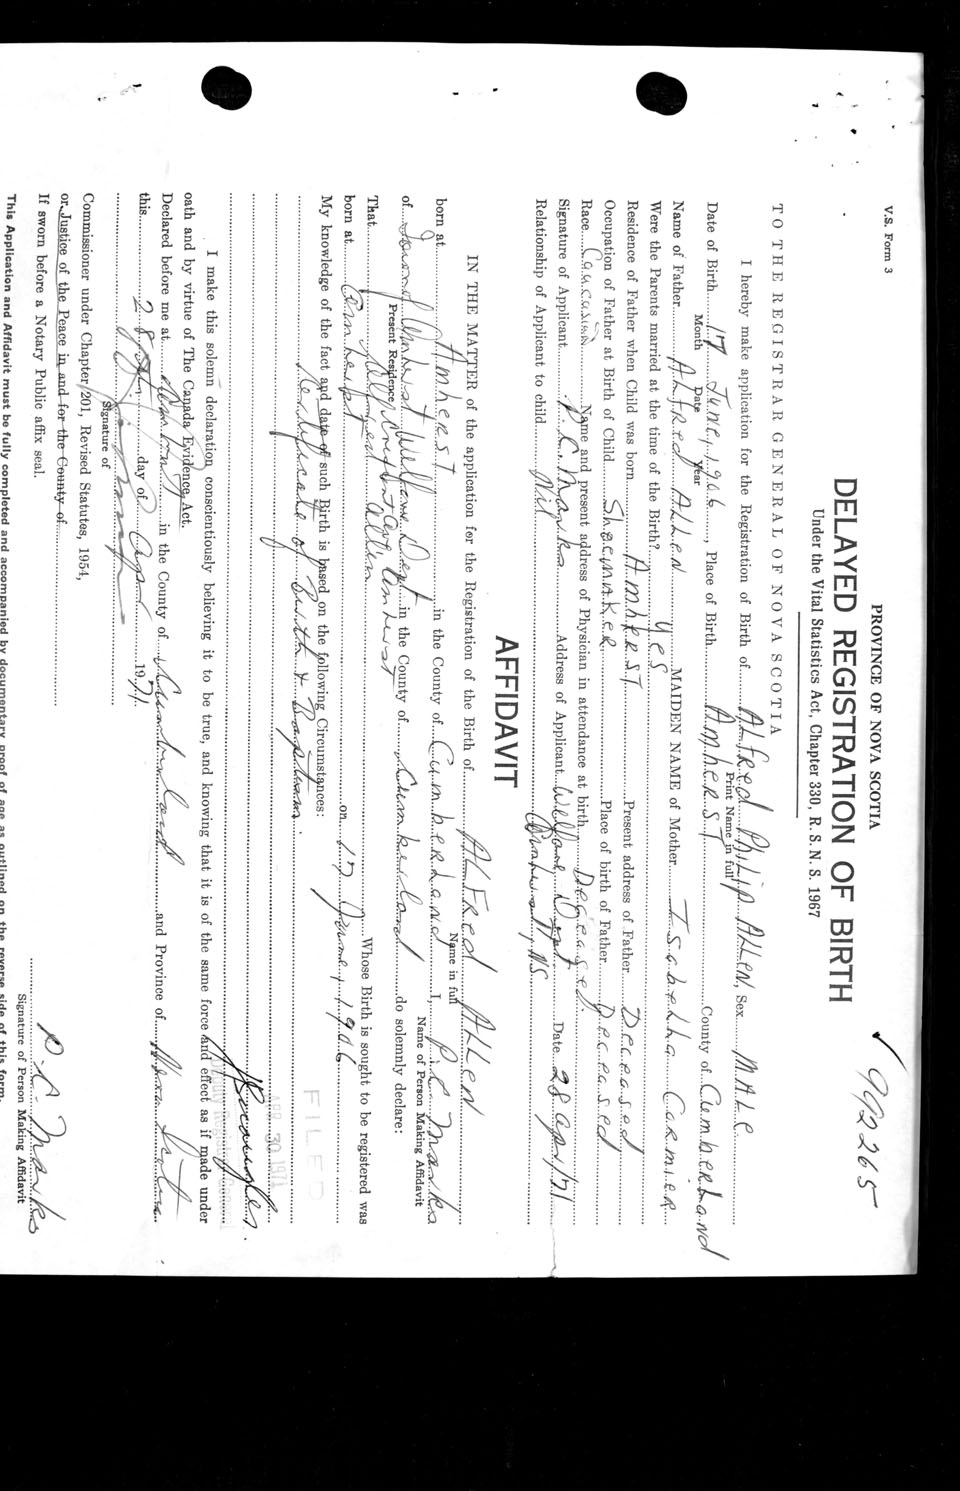 V.S. Form 3
PROVINCE OF NOVA SCOTIA
992265
DELAYED REGISTRATION OF BIRTH
Under the Vital Statistics Act, Chapter 330, R. S. N. S. 1967
TO THE REGISTRAR GENERAL OF NOVA SCOTIA
I hereby make application for the Registration of Birth of Alfred Philip Allen, Sex MALE
Print Name in full
Date of Birth 17 June, 1906, Place of Birth Amherst County of Cumberland
Month Date Year
Name of Father Alfred Allen MAIDEN NAME of Mother Isabella Cormier
Were the Parents married at the time of the Birth? Yes
Residence of Father when Child was born Amherst Present address of Father Deceased
Occupation of Father at Birth of Child Shoemaker Place of birth of Father Deceased
Race Name and present address of Physician in attendance at birth Deceased.
Signature of Applicant P.C. Marks Address of Applicant Welfare Dept Date 28 Apr/71
Relationship of Applicant to child Nil Amherst, NS
AFFIDAVIT
IN THE MATTER of the application for the Registration of the Birth of Alfred Allen
Name in full
born at Amherst in the County of Cumberland I, P.C. Marks
Name of Person Making Affidavit
of Town of Amherst Welfare Dept in the County of Cumberland do solemnly declare:
Present Residence
That Alfred Allen Amherst Whose Birth is sought to be registered was
born at Amherst on 17 June, 1906
My knowledge of the fact and date of such Birth is based on the following Circumstances:
Certificate of Birth & Baptism.
FILED
APR 30 1971
Deputy Registrar General
I make this solemn declaration conscientiously believing it to be true, and knowing that it is of the same force and effect as if made under
oath and by virtue of The Canada Evidence Act.
Declared before me at Amherst in the County of Cumberland and Province of Nova Scotia
this 28th day of Apr 1971.
Signature of
Commissioner under Chapter 201, Revised Statutes, 1954,
or Justice of the Peace in and for the County of
If sworn before a Notary Public affix seal.
P.C. Marks
Signature of Person Making Affidavit
This Application and Affidavit must be fully completed and accompanied by documentary proof of age as outlined on the reverse side of this form.